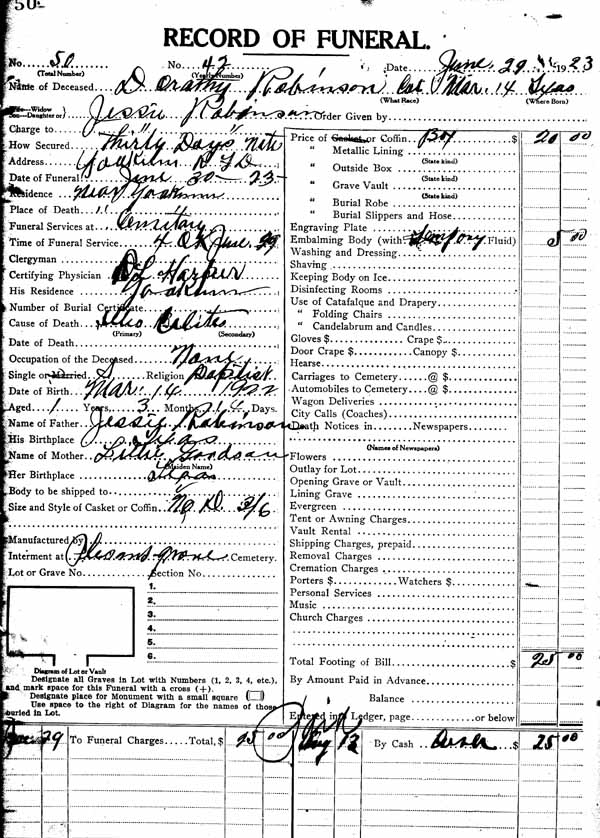 50
RECORD OF FUNERAL.
No. 50 No. 42 Date June 29 1923
(Total Number) (Yearly Number)
Name of Deceased D Robinson Col Mar. 14 Texas
(What Race) (Where Born)
Widow
Son—Daughter or) Jessie Robinson Order Given by
Charge to
How Secured "Thirty Days" Note
Address Yoakum R F D
Date of Funeral June 30—23
Residence Near Yoakum
Place of Death "
Funeral Services at Cemetary
Time of Funeral Service 4 June 29
Clergyman
Certifying Physician Harbur
His Residence Yoakum
Number of Burial Certificate
Cause of Death Ileo Colitis
(Primary) (Secondary)
Date of Death
Occupation of the Deceased None
Single or Married S Religion Baptist
Date of Birth Mar. 14 1922
Aged 1 Years, 3 Months, Days.
Name of Father Jessie Robinson
His Birthplace Texas
Name of Mother Goodson
(Maiden Name)
Her Birthplace Texas
Body to be shipped to
Size and Style of Casket or Coffin No D. 3/6
Manufactured by
Interment at Pleasant Grove Cemetery.
Lot or Grave No. Section No.
1.
2.
3.
4.
5.
6.
Diagram of Lot or Vault
Designate all Graves in Lot with Numbers (1, 2, 3, 4, etc.),
and mark space for this Funeral with a cross (+).
Designate place for Monument with a small square
Use space to the right of Diagram for the names of those
buried in Lot.
Price of Casket or Coffin Box $ 20 00
" Metallic Lining
(State kind)
" Outside Box
(State kind)
" Grave Vault
(State kind)
" Burial Robe
" Burial Slippers and Hose
Engraving Plate
Embalming Body (with Fluid) 5 00
Washing and Dressing
Shaving
Keeping Body on Ice
Disinfecting Rooms
Use of Catafalque and Drapery
" Folding Chairs
" Candelabrum and Candles
Gloves $ Crape $
Door Crape $ Canopy $
Hearse
Carriages to Cemetery @ $
Automobiles to Cemetery @ $
Wagon Deliveries
City Calls (Coaches)
Death Notices in Newspapers
(Names of Newspapers)
Flowers
Outlay for Lot
Opening Grave or Vault
Lining Grave
Evergreen
Tent or Awning Charges
Vault Rental
Shipping Charges, prepaid
Removal Charges
Cremation Charges
Porters $ Watchers $
Personal Services
Music
Church Charges
Total Footing of Bill $ 25 00
By Amount Paid in Advance
Balance
Entered into Ledger, page or below
June 29 To Funeral Charges Total, $ 25 00
Aug 13 By Cash $ 25 00